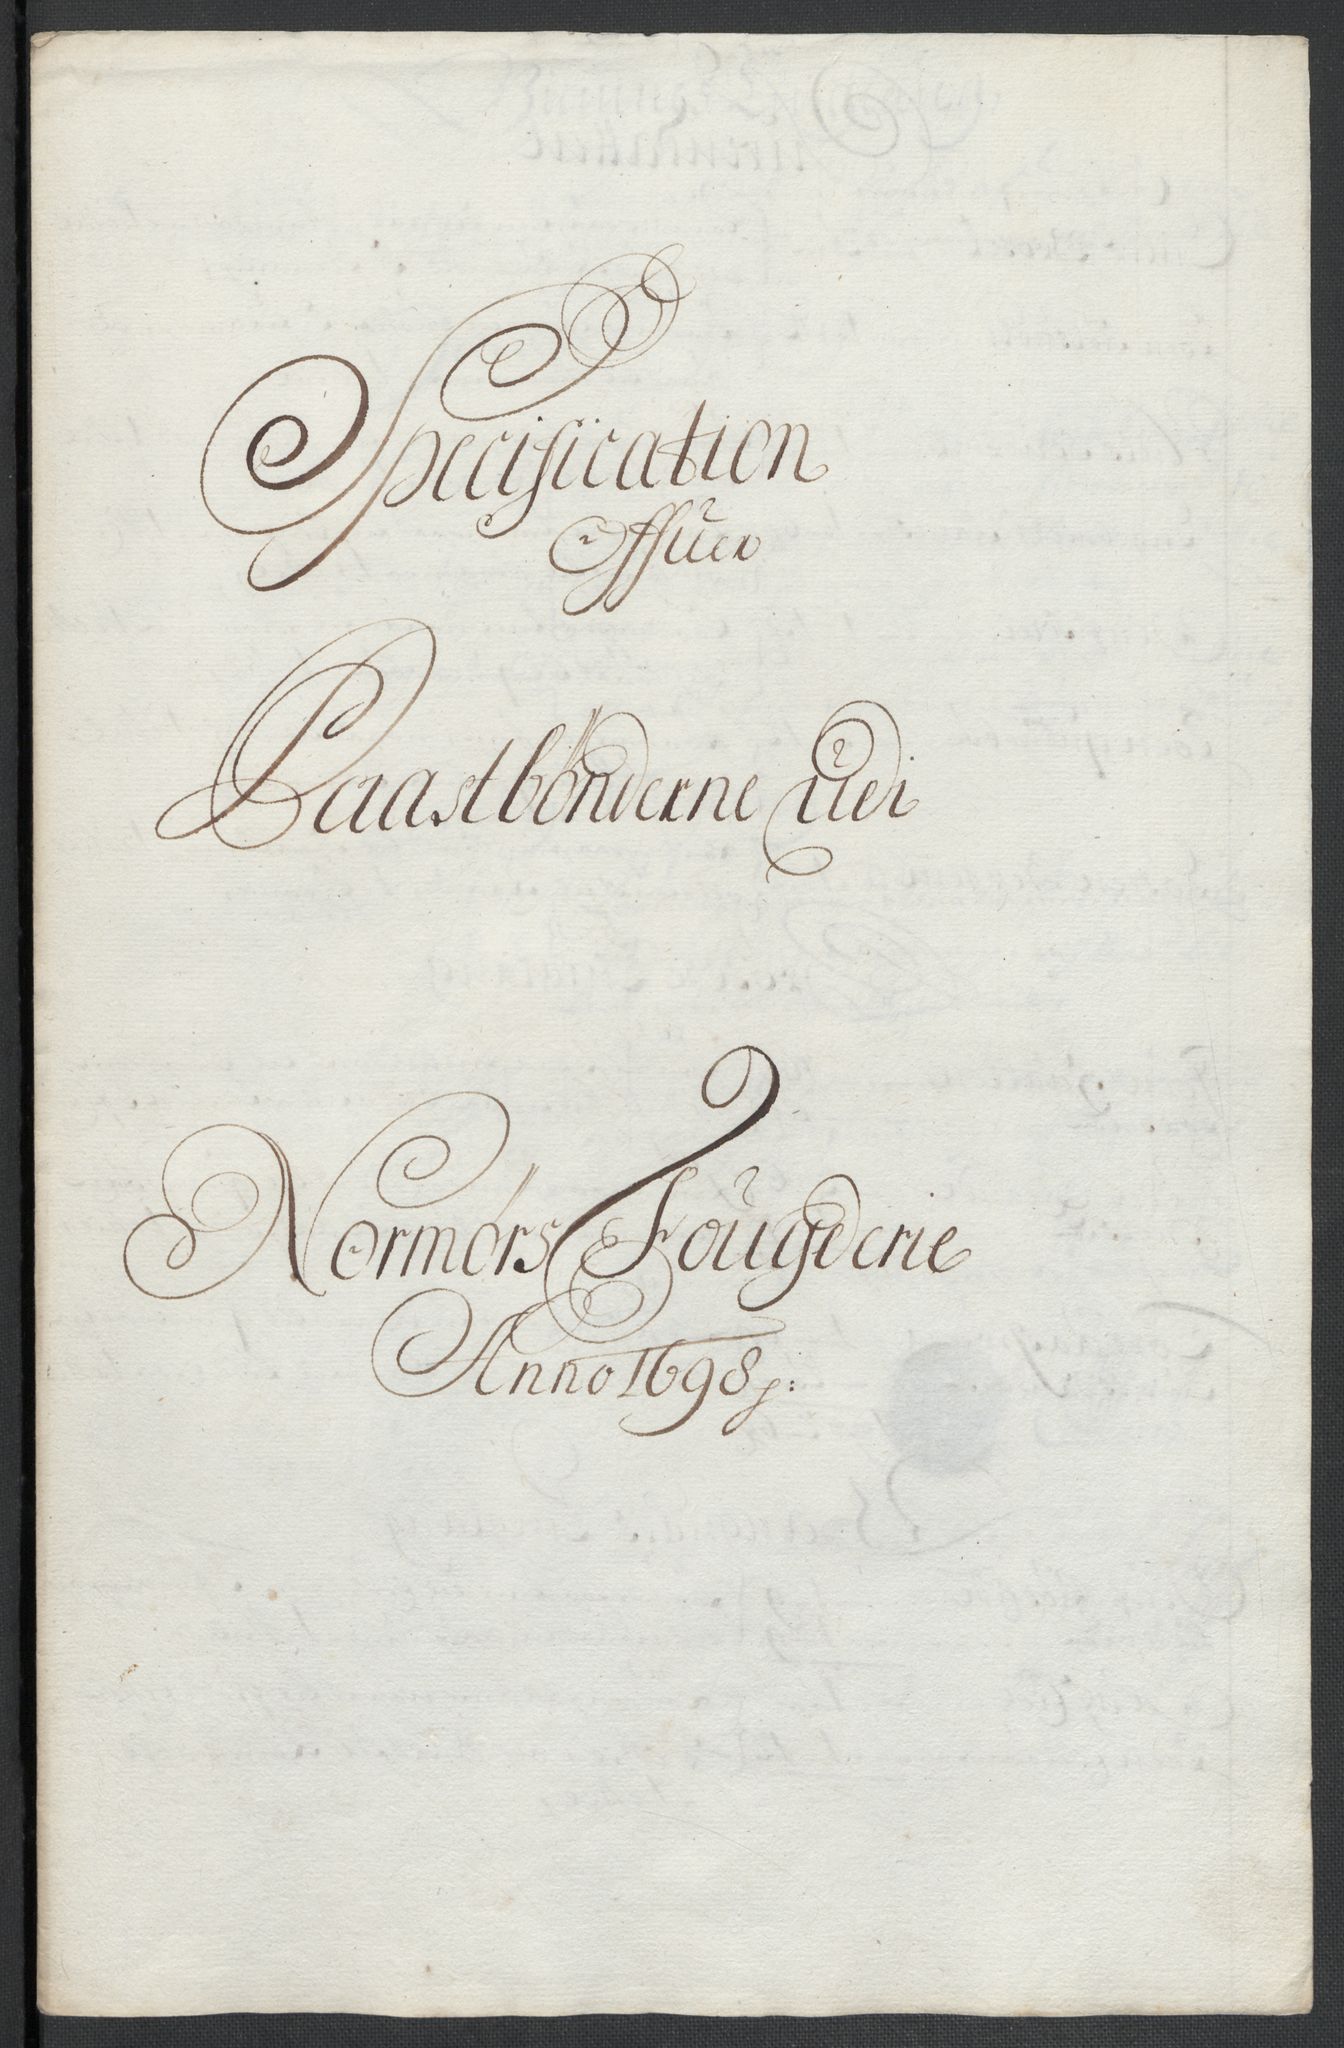 Specification
Offuer
Laastbønderne udi
Normørs Fougderie
Anno 1698